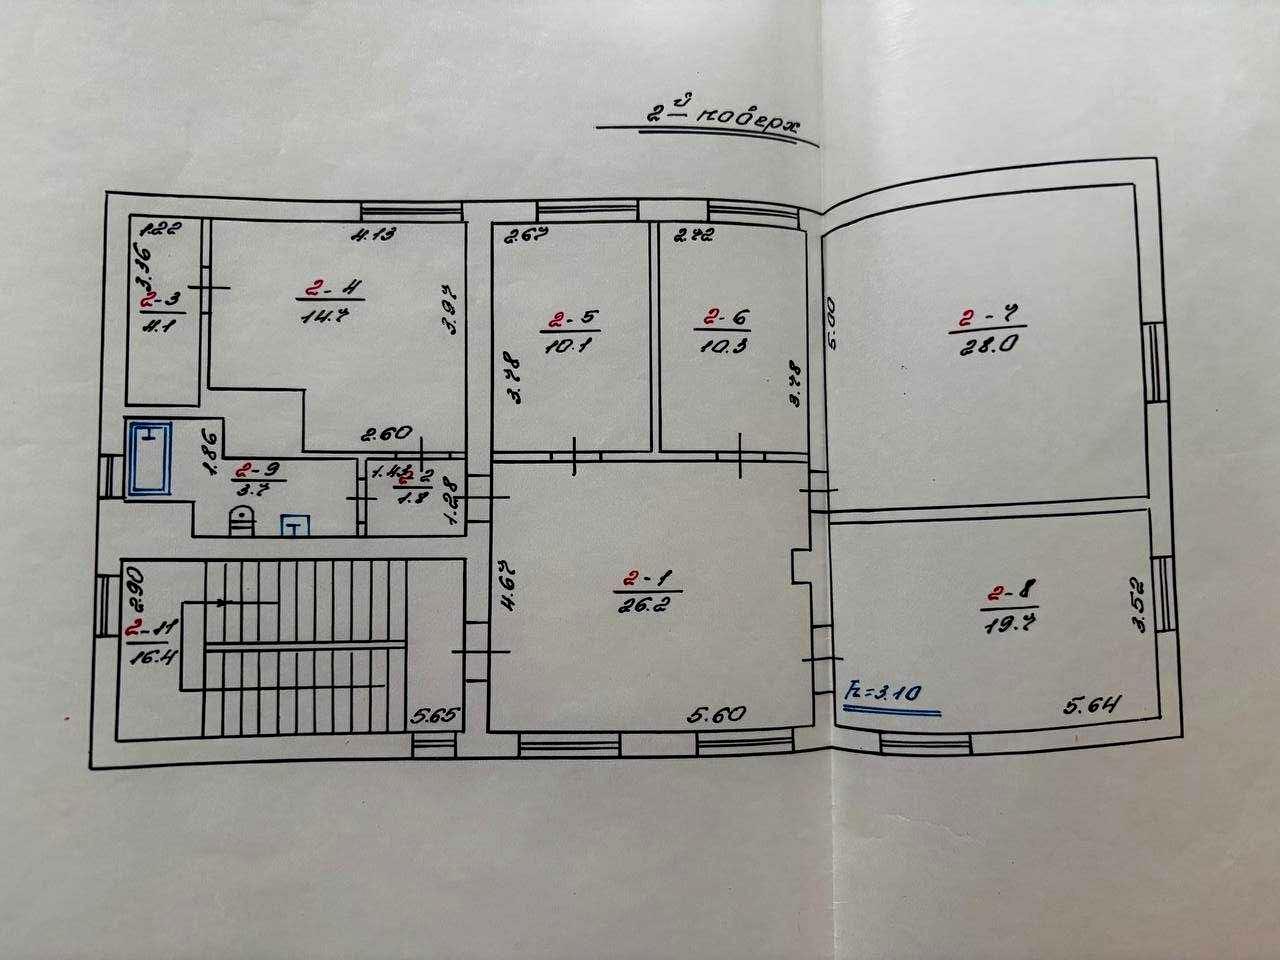 2й поверх
1.22
3.36
2-3
4.1
4.13
2-4
14.7
3.97
2.60
2.67
2-5
10.1
3.78
2.72
2-6
10.3
3.78
5.00
2-7
28.0
1.86
2-9
3.7
1.41
2-2
1.8
1.28
2.90
2-11
16.4
5.65
4.67
2-1
26.2
5.60
2-8
19.7
3.52
h=3.10
5.64